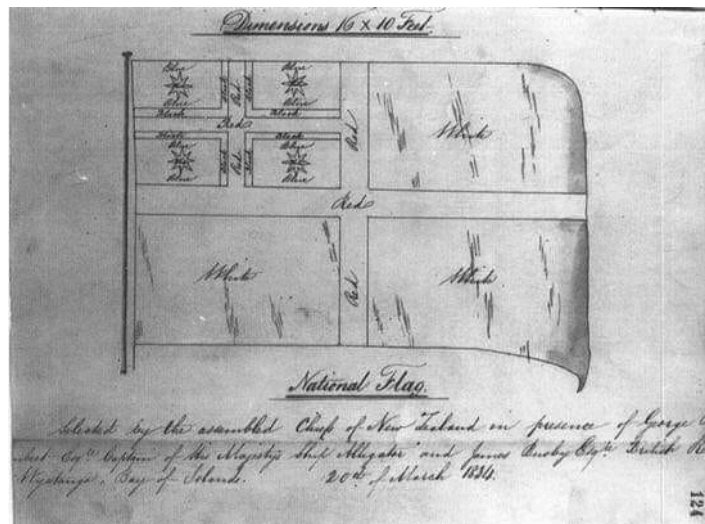 Dimensions 16 x 10 Feet.
Blue Blue
Black Red Black
Blue Blue
Black Black
Red Red White
Black Black
Blue Blue
Black Red Black
Blue Blue
Red
White Red White
National Flag.
Selected by the assembled Chiefs of New Zealand in presence of George
Esqre. Captain of His Majesty's Ship 'Alligator' and James Busby Esqre. British
Bay of Islands. 20th of March 1834.
124